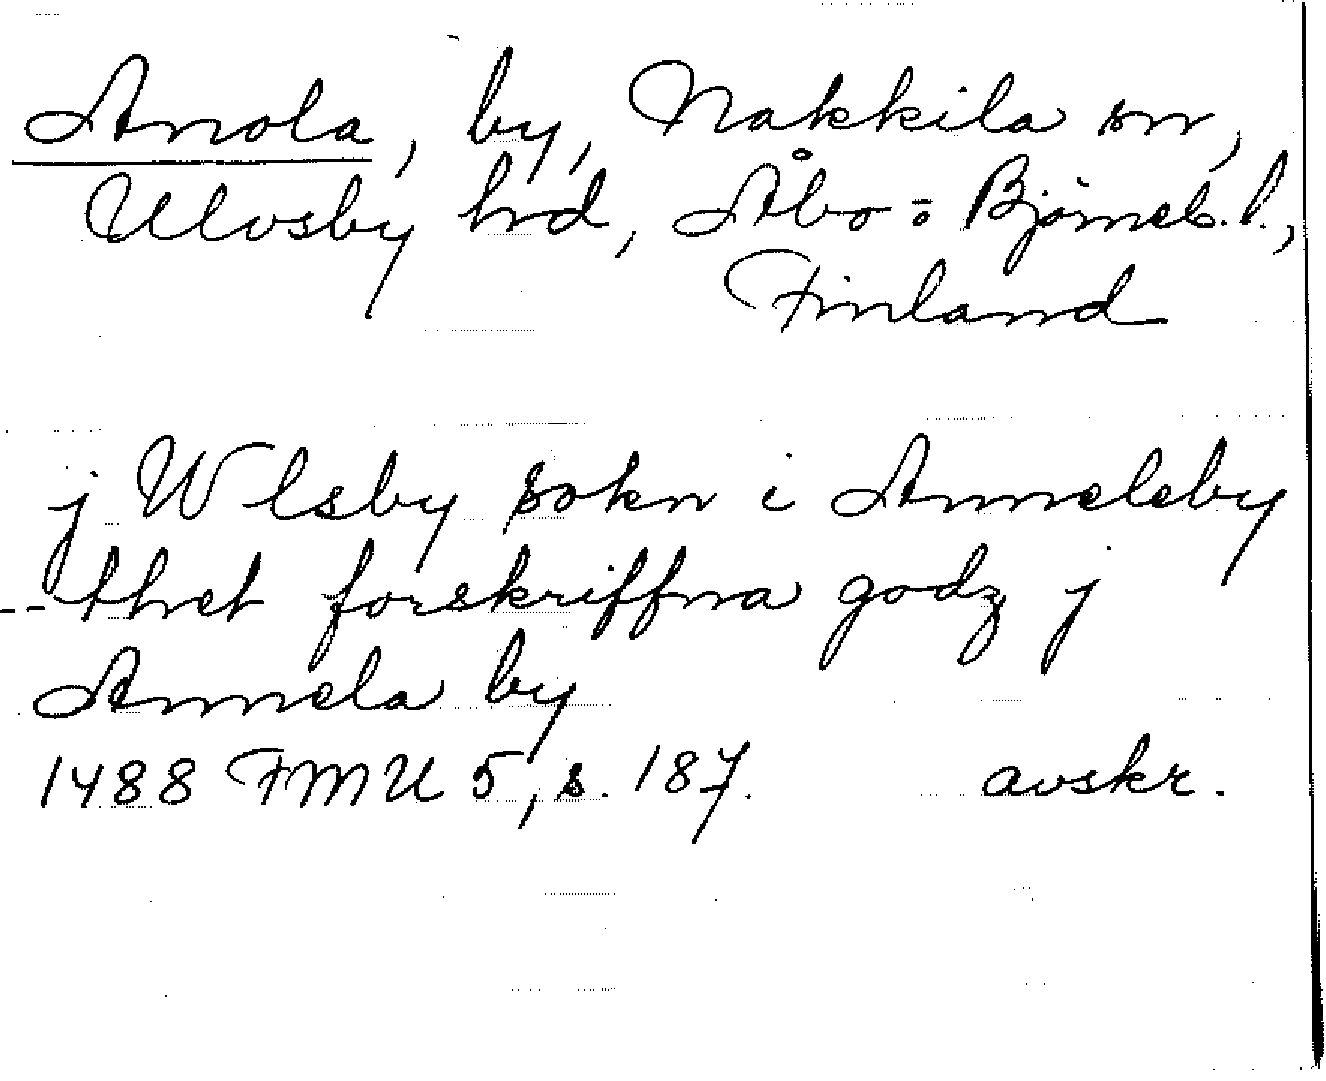 Anola, by, Nakkila sn,
Ulvsby hrd, Åbo = Björneb. l.,
Finland
j Wlsby sokn i Anneleby
-- thet forskriffna godz j
Annela by
1488 FMU 5, s. 187. avskr.